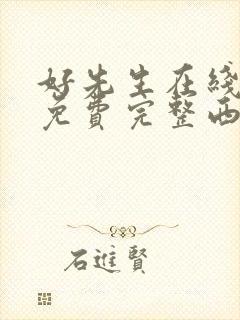 好先生在线
免费完整西
石進賢